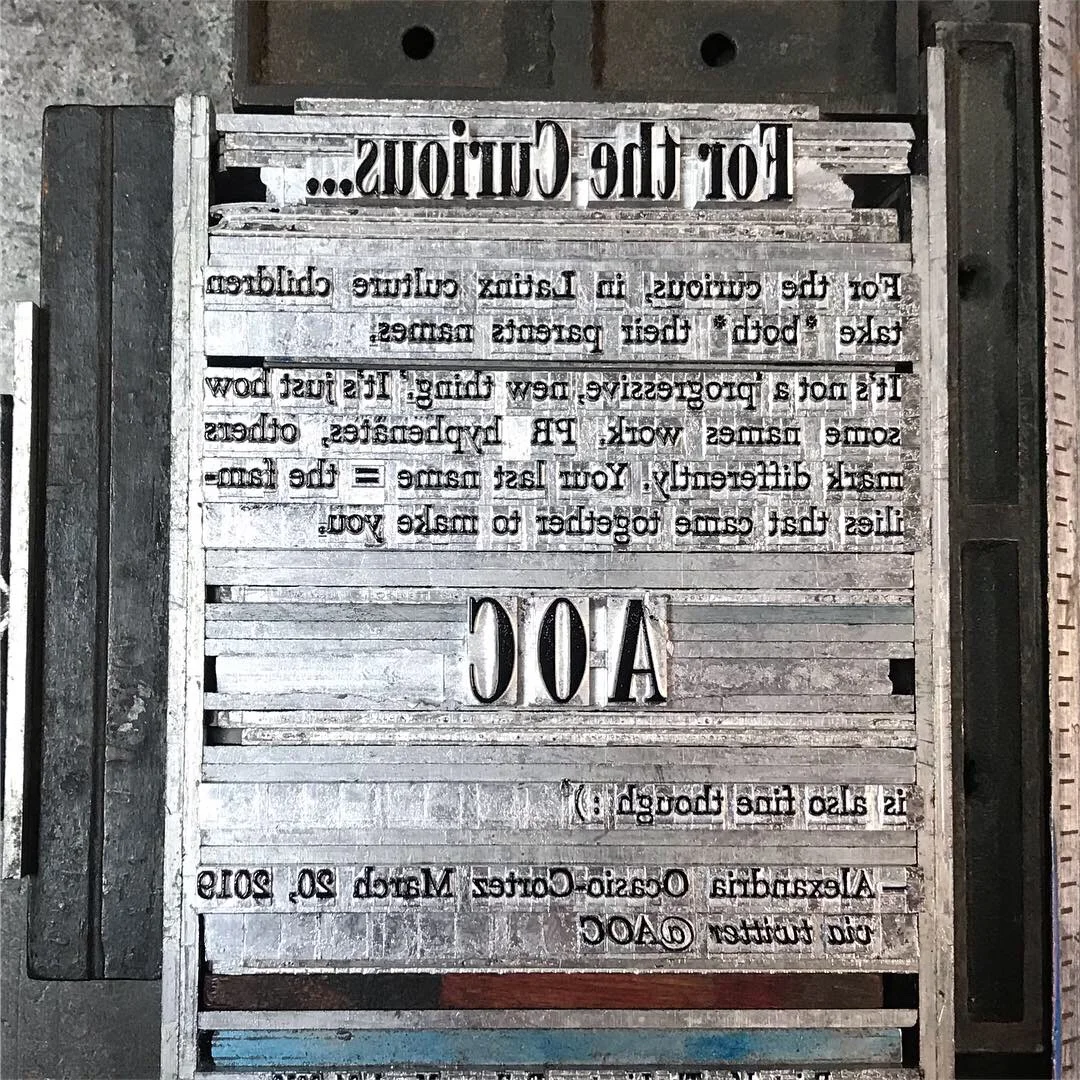 For the Curious...
For the curious, in Latinx culture children
take *both* their parents names.
It's not a 'progressive, new thing.' It's just how
some names work. PR hyphenates, others
mark differently. Your last name = the fam-
ilies that came together to make you.
AOC
is also fine though :)
—Alexandria Ocasio-Cortez March 20, 2019
via twitter @AOC